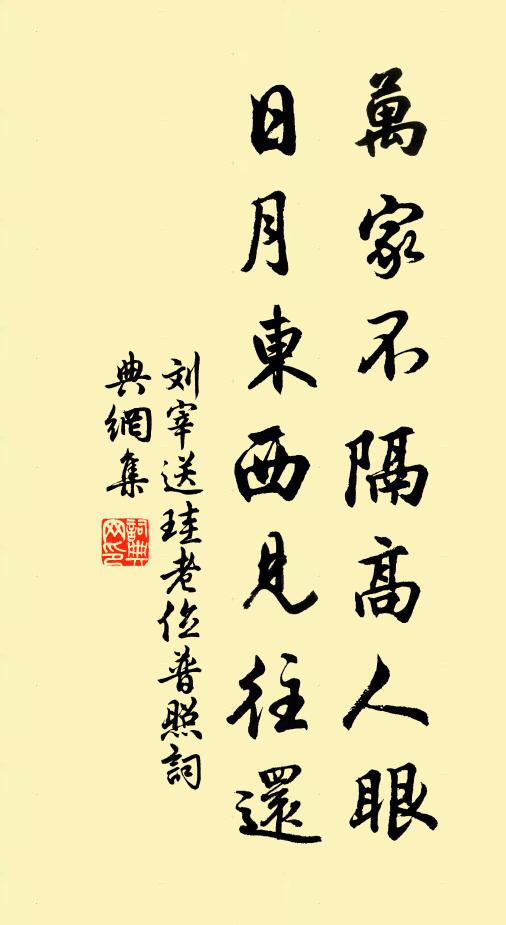 萬家不隔高人眼
日月東西見往還
刘宰送珪老住普照詞
典網集
詞典網印